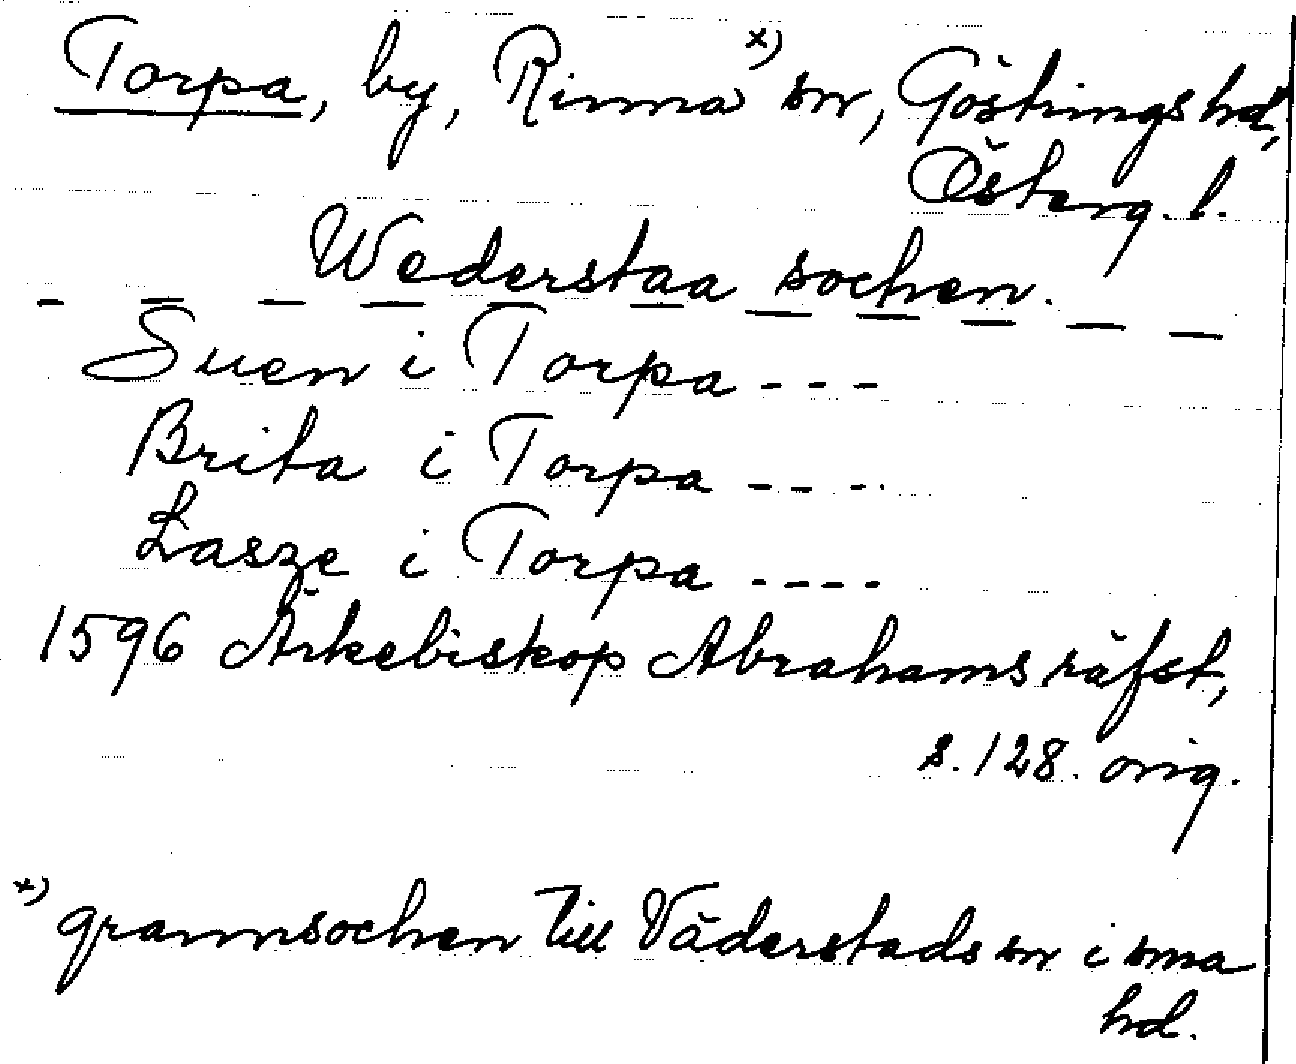 Torpa, by, Rinna x) sn, Göstrings hd,
Österg. l.
Wederstaa sochen.
- - - - - - - - - - -
Suen i Torpa - - -
Brita i Torpa - - - -
Lasze i Torpa - - - -
1596 Ärkebiskop Abrahams räfst,
s. 128. orig.
x) grannsochen till Väderstads sn i sma
hd.